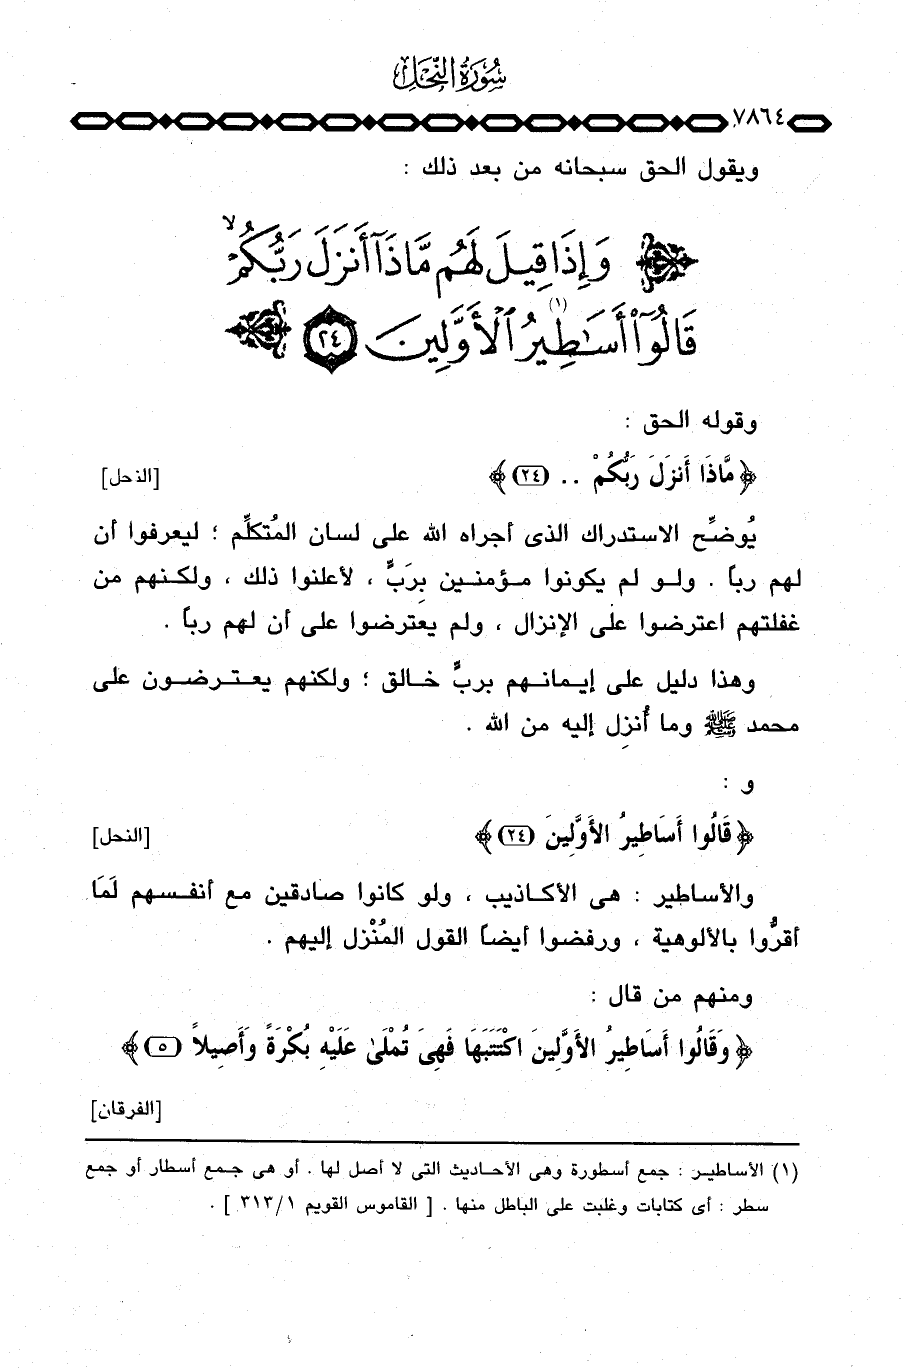 سُورَةُ النَّحْلِ
٧٨٦٤
ويقول الحق سبحانه من بعد ذلك :
وَإِذَا قِيلَ لَهُم مَّاذَآ أَنزَلَ رَبُّكُمْ ۙ
قَالُوٓا۟ أَسَٰطِيرُ (١) ٱلْأَوَّلِينَ ٢٤
وقوله الحق :
﴿ مَّاذَا أَنزَلَ رَبُّكُمْ .. (٢٤) ﴾ [النحل]
يُوضِّح الاستدراك الذى أجراه الله على لسان المُتكلِّم ؛ ليعرفوا أن
لهم رباً . ولو لم يكونوا مؤمنين بِرَبٍّ ، لأعلنوا ذلك ، ولكنهم من
غفلتهم اعترضوا على الإنزال ، ولم يعترضوا على أن لهم رباً .
وهذا دليل على إيمانهم بربٍّ خالق ؛ ولكنهم يعترضون على
محمد ﷺ وما أُنزِل إليه من الله .
و :
﴿ قَالُوا أَسَاطِيرُ الأَوَّلِينَ (٢٤) ﴾ [النحل]
والأساطير : هى الأكاذيب ، ولو كانوا صادقين مع أنفسهم لَمَا
أقرُّوا بالألوهية ، ورفضوا أيضاً القول المُنْزل إليهم .
ومنهم من قال :
﴿ وَقَالُوا أَسَاطِيرُ الأَوَّلِينَ اكْتَتَبَهَا فَهِىَ تُمْلَىٰ عَلَيْهِ بُكْرَةً وَأَصِيلاً (٥) ﴾
[الفرقان]
(١) الأساطير : جمع أسطورة وهى الأحاديث التى لا أصل لها . أو هى جمع أسطار أو جمع
سطر : أى كتابات وغلبت على الباطل منها . [ القاموس القويم ٣١٣/١ ] .